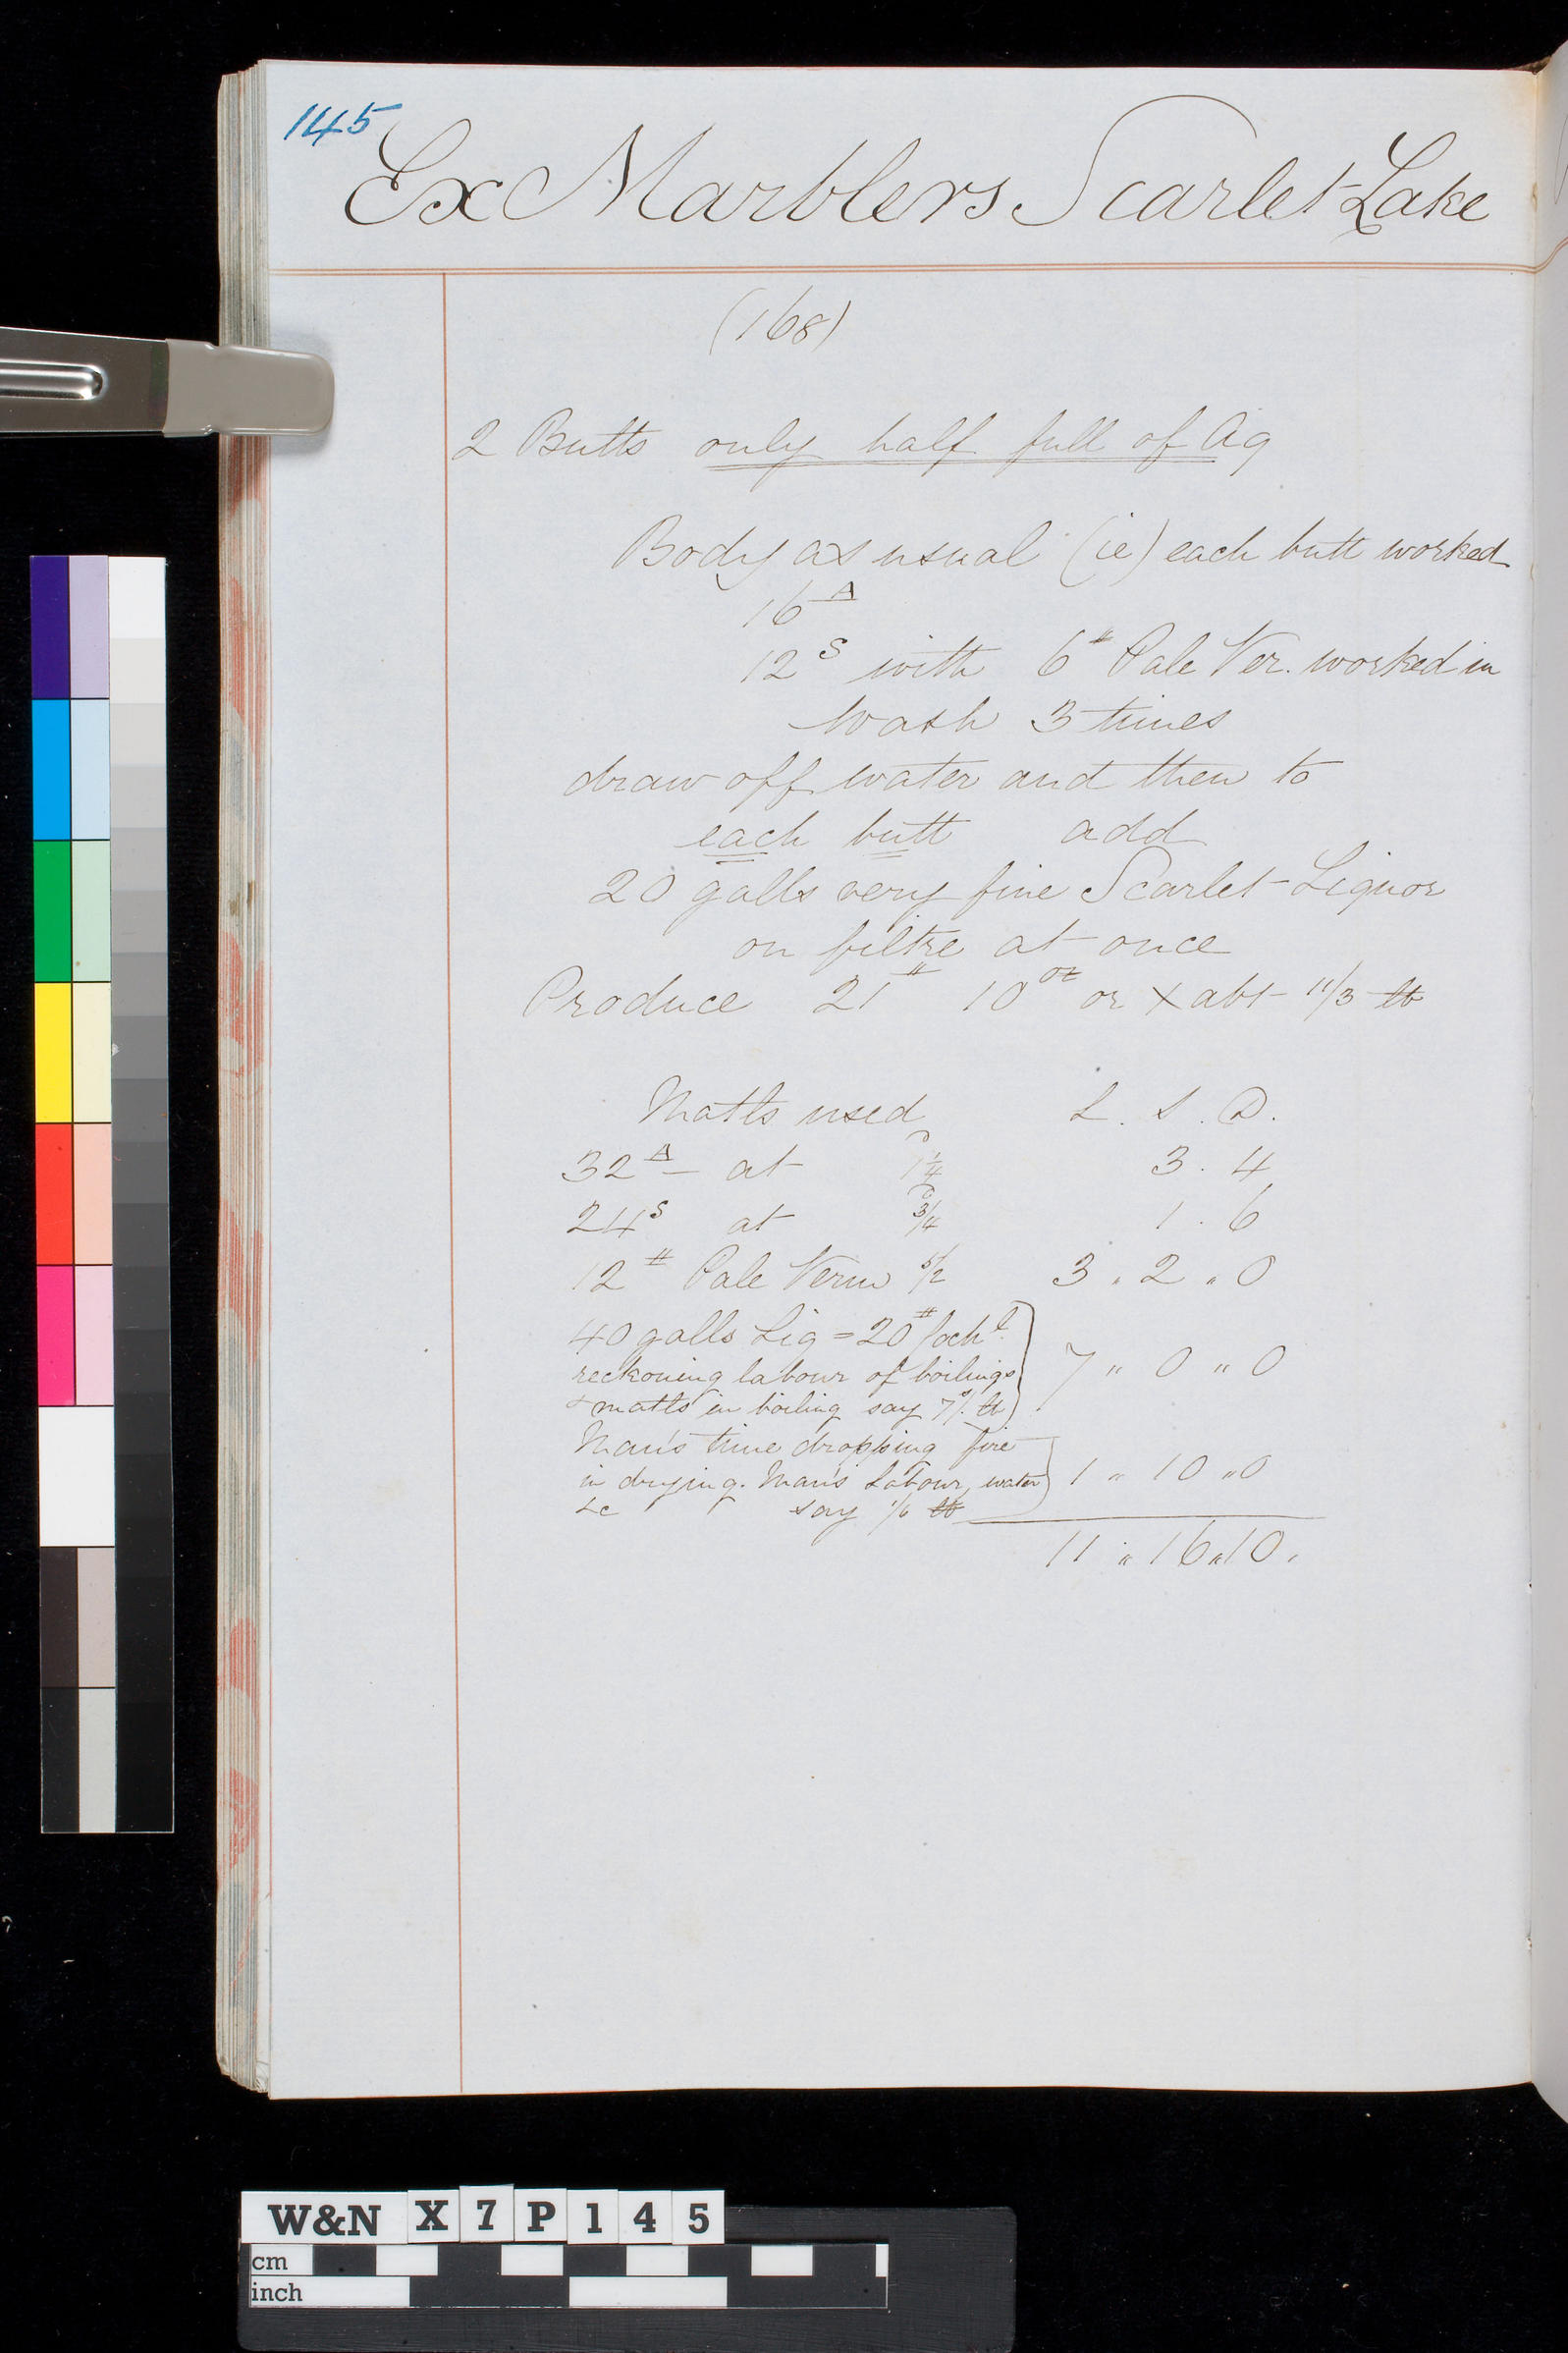 145
Ex Marblers Scarlet Lake
(168)
2 Butts only half full of Aq
Body as usual (ie) each butt worked
16 A
12 S with 6 # Pale Ver. worked in
Wash 3 times
draw off water and then to
each butt add
20 galls very fine Scarlet Liquor
on filtre at once
Produce 21 # 10 oz or X abt 11/3 lb
Matls used L. S. D.
32 A at 1 1/4 3. 4
24 S at 3/4 1. 6
12 # Pale Verm 5/2 3 " 2 " 0
40 galls Liq = 20 #
reckoning labour of boilings 7 " 0 " 0
& matls in boiling say 7/. lb
Man's time dropping fire
in drying. Man's Labour, water 1 " 10 " 0
&c say 1/6 lb
11 " 16 " 10.
W&N X 7 P 1 4 5
cm
inch